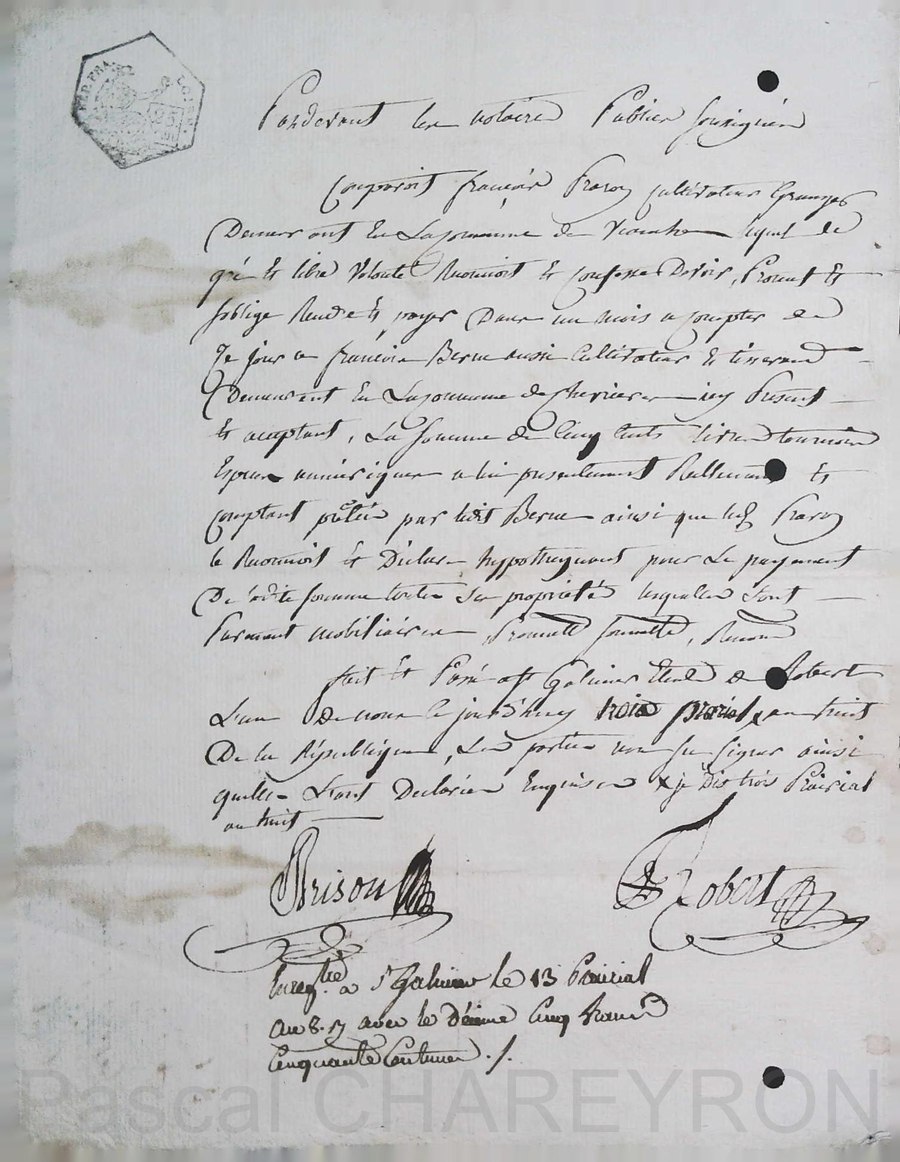 RÉP. FRA
25
Pardevant les notaires Publics soussignés
Comparoit françois cultivateur Granger
Demeurant En La commune de lequel de
gré Et libre volonté Reconnoit Et confesse Devoir, Promet Et
s'oblige Rendre Et payer Dans un mois a compter de
Ce jour a françois Berne aussi Cultivateur Et tisserand
Demeurant En La commune de Chevrieres icy Présent
Et acceptant, La somme de Cinq Cents livres tournois
Especes a lui presentement Réellement Et
comptant prêtée par ledit Berne ainsi que led.
le Reconnoit Et Déclare hypothequant pour Le payement
De lad.te somme toutes ses propriétés lesquelles sont
Purement mobiliaires Promett soumett, Renon
fait Et Passé a St Galmier Etude de Robert
L'un De nous le jourd'huy trois prairial x an huit
De la République, Les parties n'ont su signer ainsi
quelles L'ont Déclaré Enquises x je Dis trois Prairial
an huit
Brison
Robert
Enreg.tré a St Galmier le 13 Prairial
an 8. avec le Décime Cinq francs
Cinquante Centimes ./.
Pascal CHAREYRON